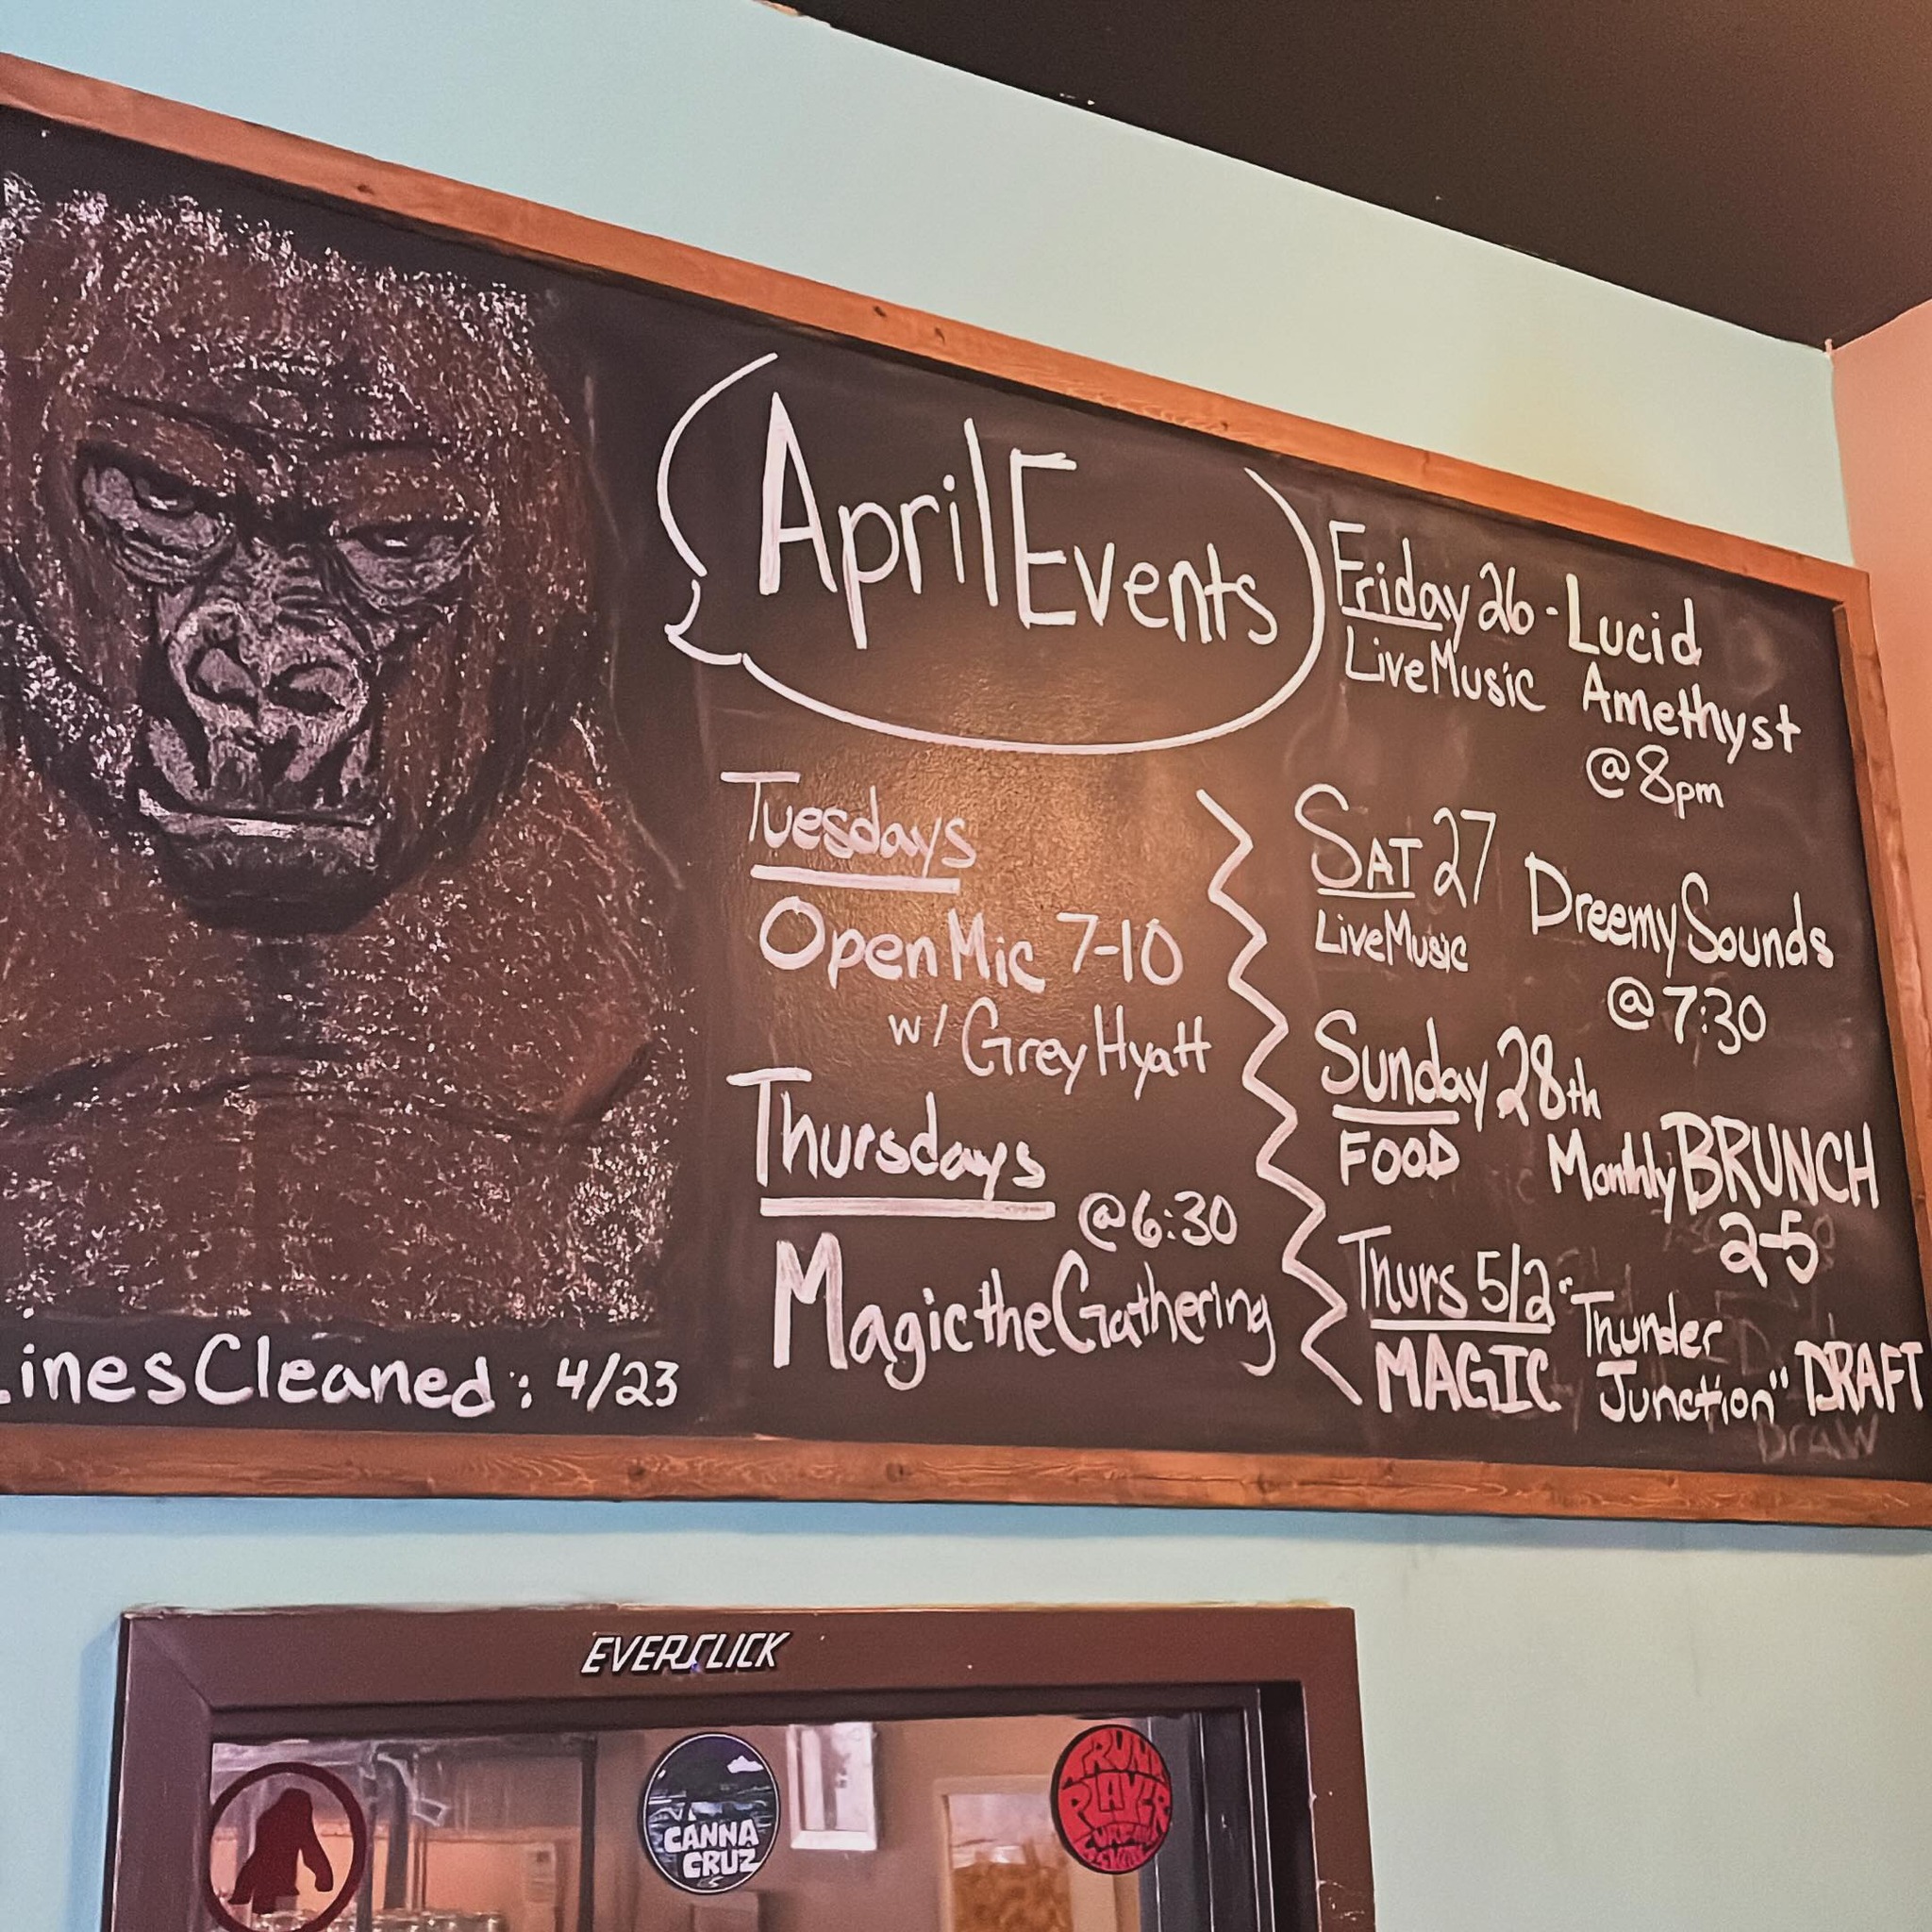 April Events
Tuesdays
Open Mic 7-10
w/ Grey Hyatt
Thursdays
@6:30
Magic the Gathering
Friday 26 - Lucid
Live Music Amethyst
@8pm
SAT 27
Live Music
Dreemy Sounds
@7:30
Sunday 28th
FOOD
Monthly BRUNCH
2-5
Thurs 5/2 "Thunder
MAGIC Junction" DRAFT
Draw
Lines Cleaned: 4/23
EVERSLICK
CANNA
CRUZ
PLAYER